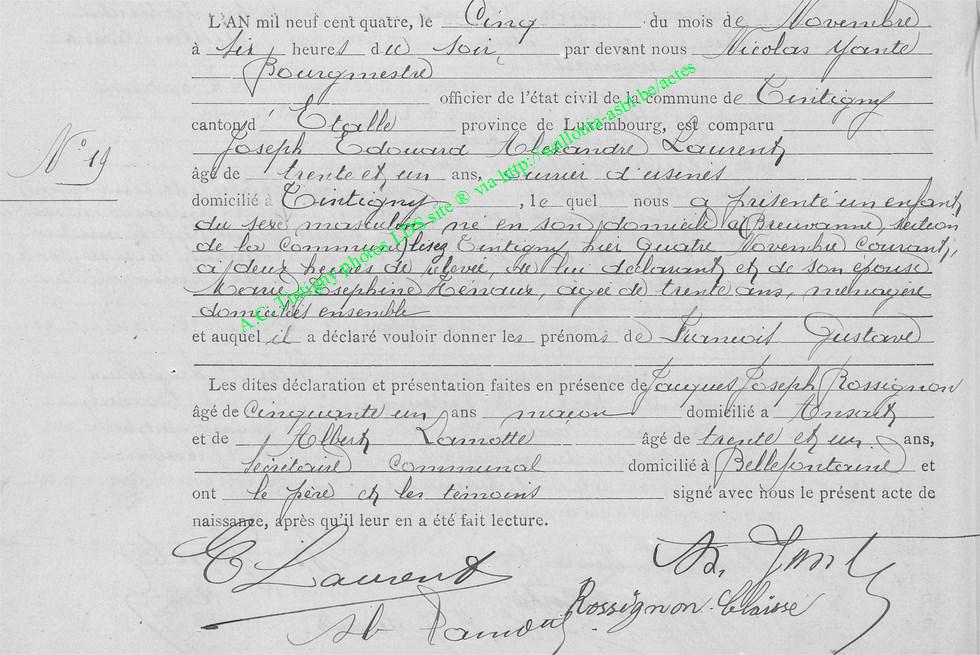 L'AN mil neuf cent quatre, le Cinq du mois de Novembre
à six heures du soir par devant nous Nicolas Yante
Bourgmestre
officier de l'état civil de la commune de Tintigny
canton d' Etalle province de Luxembourg, est comparu
Joseph Edouard Alexandre Laurent,
N° 19
âgé de trente et un ans, ouvrier d'usines
domicilié à Tintigny, le quel nous a présenté un enfant
du sexe masculin né en son domicile à Breuvanne, section
de la commune lisez Tintigny hier quatre Novembre courant,
à deux heures de relevée, de lui déclarant et de son épouse
Marie Josephine Hénaux, agée de trente ans, ménagère
domiciliés ensemble
et auquel il a déclaré vouloir donner les prénoms de François Gustave
Les dites déclaration et présentation faites en présence de Jacques Joseph Rossignon
âgé de Cinquante un ans maçon domicilié a Ansart
et de Albert Lamotte âgé de trente et un ans,
secrétaire communal domicilié à Bellefontaine et
ont le père et les témoins signé avec nous le présent acte de
naissance, après qu'il leur en a été fait lecture.
E Laurent
Rossignon-Claisse
A.C. Tintigny photos LDS site ® via http://wallonia-asbl.be/actes